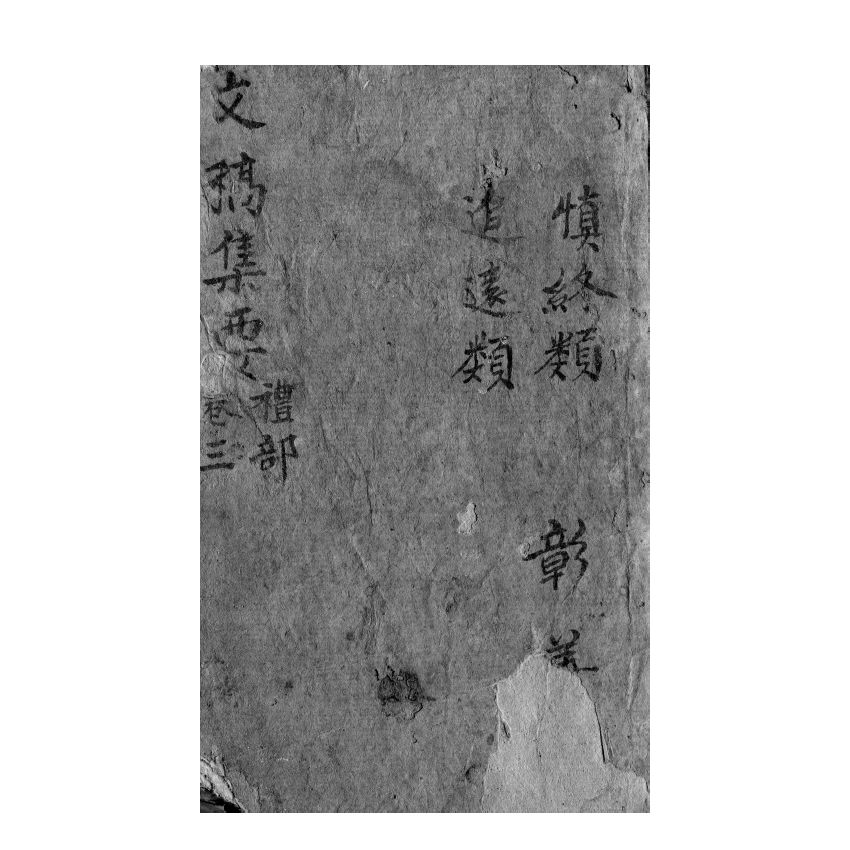 慎終類
彰
追遠類
文稿集要
禮部
卷三